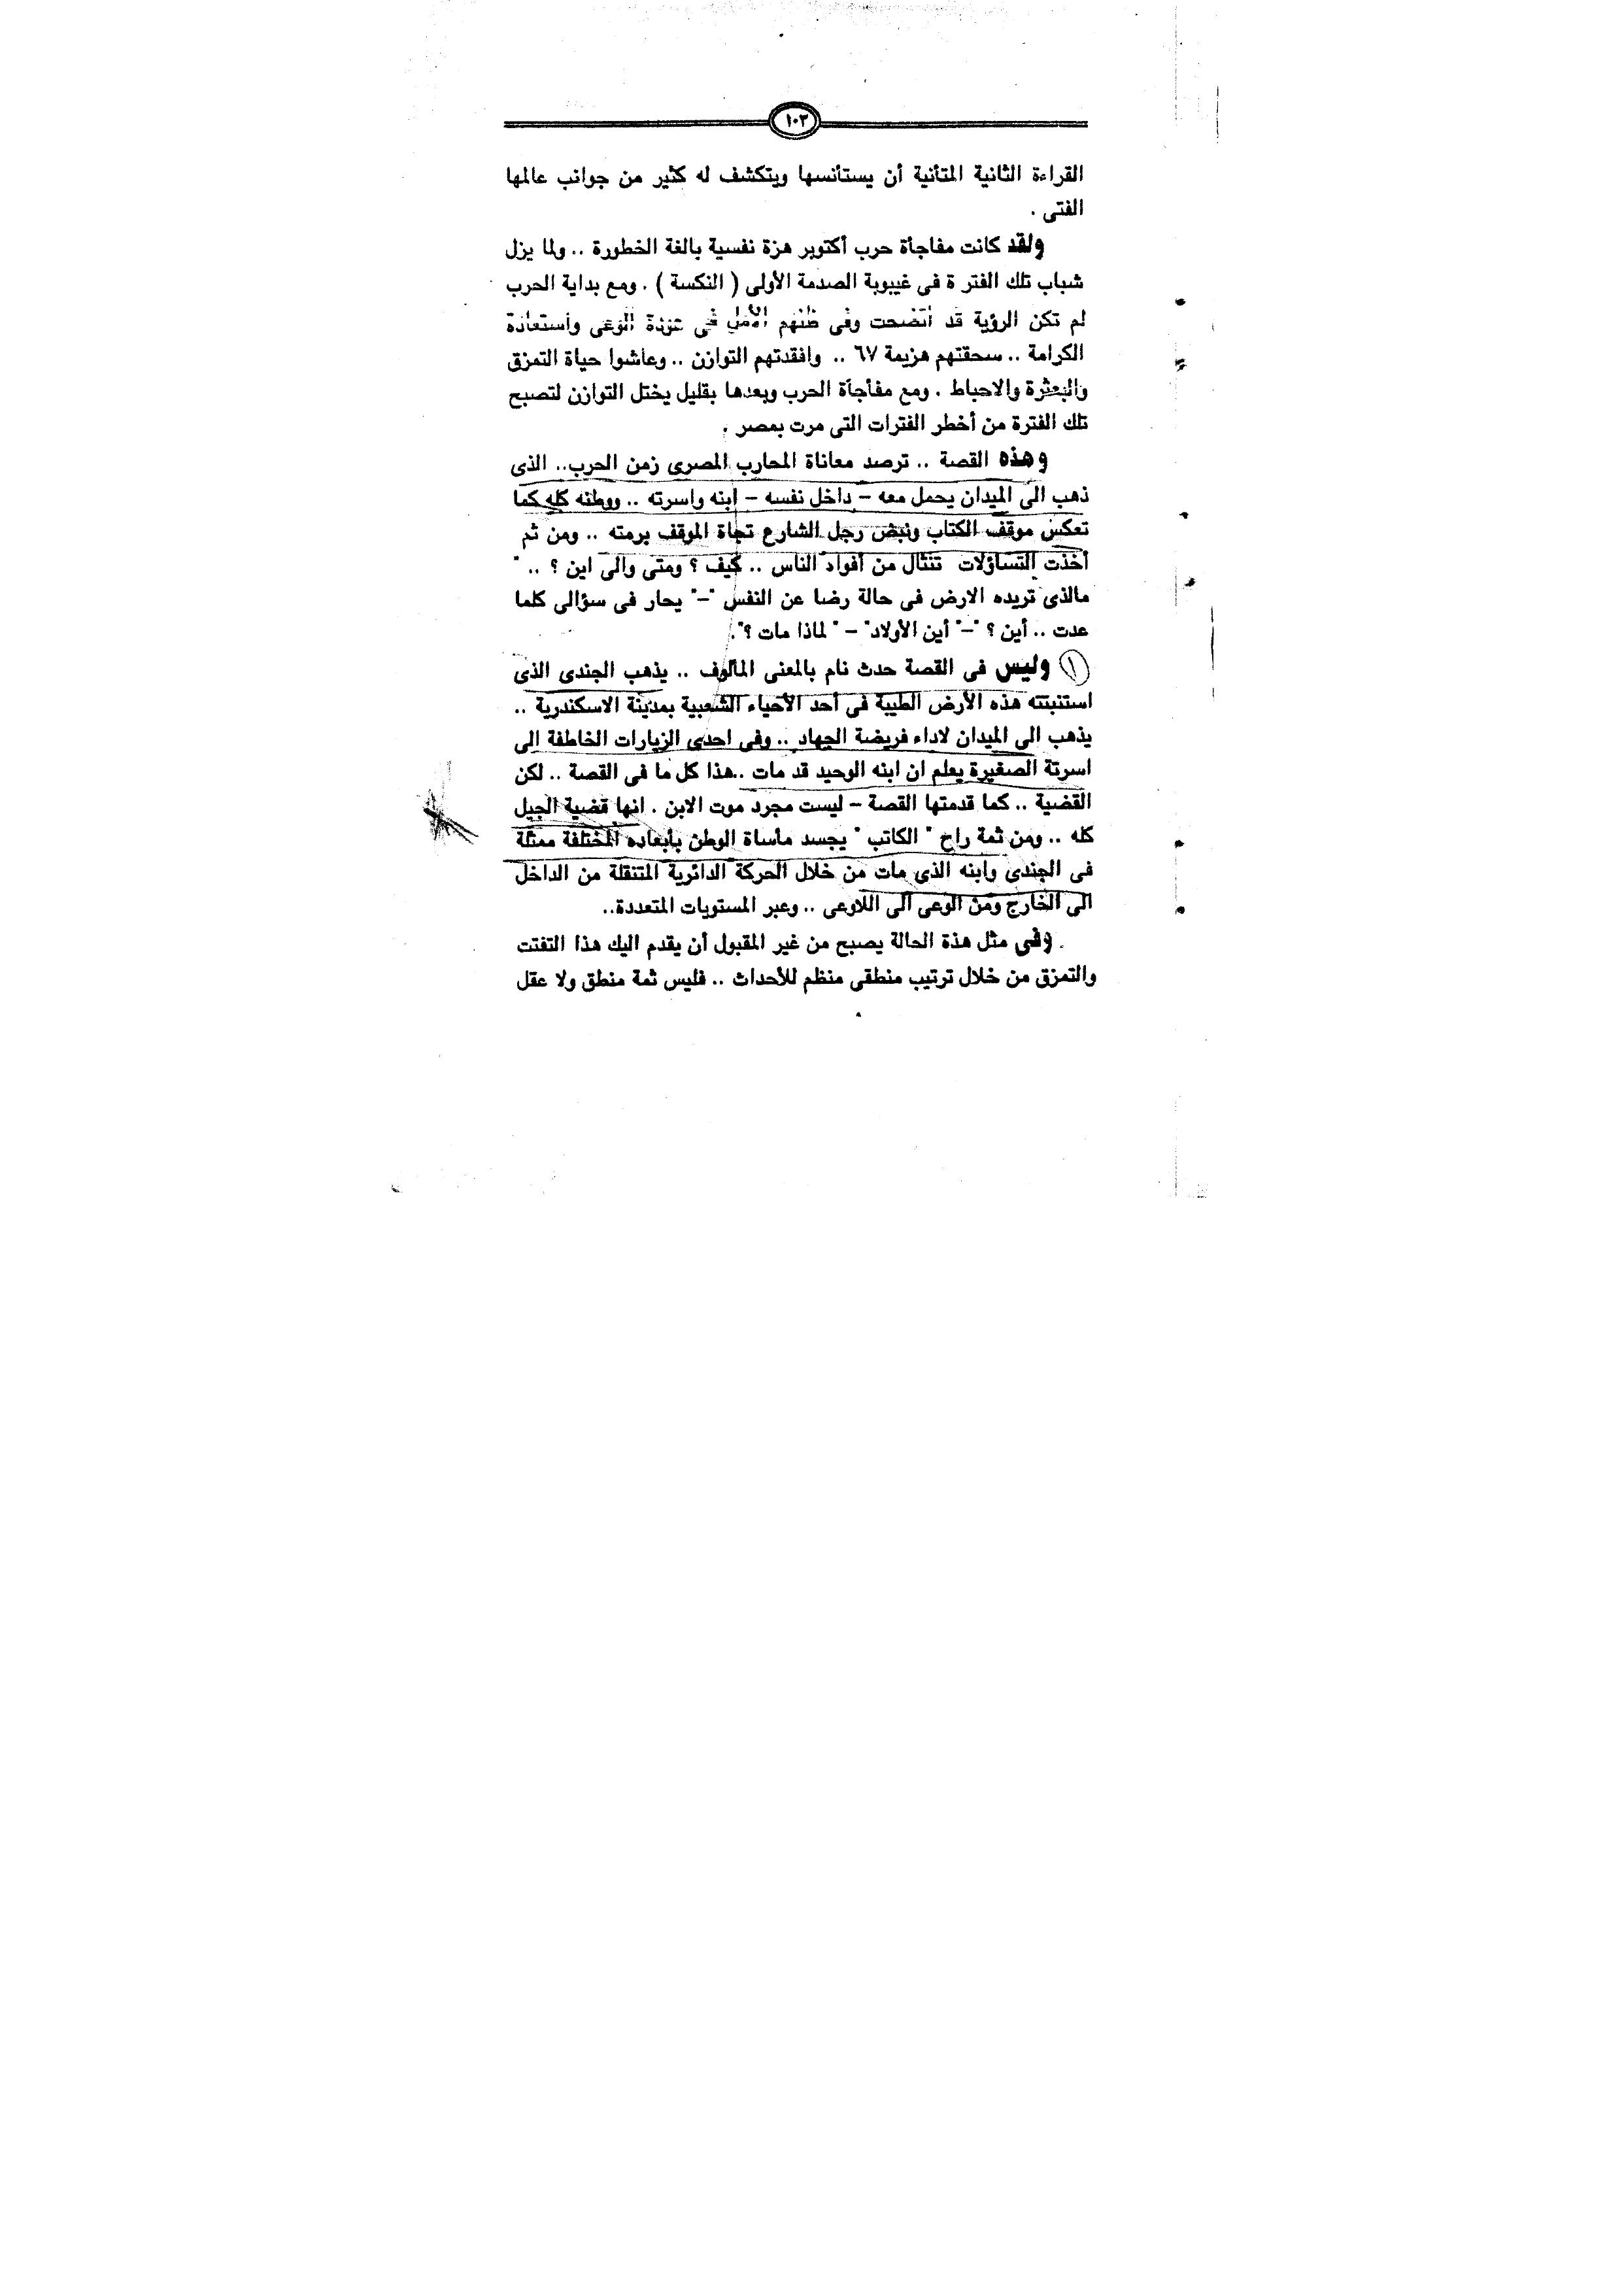 ١٠٣
القراءة الثانية المتأنية أن يستأنسها ويتكشف له كثير من جوانب عالمها
الفتى .
ولقد كانت مفاجأة حرب أكتوبر هزة نفسية بالغة الخطورة .. ولما يزل
شباب تلك الفتر ة فى غيبوبة الصدمة الأولى ( النكسة ) . ومع بداية الحرب
لم تكن الرؤية قد اتضحت وفى ظنهم الأمل فى عودة الوعى واستعادة
الكرامة .. سحقتهم هزيمة ٦٧ .. وافقدتهم التوازن .. وعاشوا حياة التمزق
والبعثرة والاحباط . ومع مفأجأة الحرب وبعدها بقليل يختل التوازن لتصبح
تلك الفترة من أخطر الفترات التى مرت بمصر .
وهذه القصة .. ترصد معاناة المحارب المصرى زمن الحرب.. الذى
ذهب الى الميدان يحمل معه – داخل نفسه – ابنه واسرته .. ووطنه كله كما
تعكس موقف الكتاب ونبض رجل الشارع تجاة الموقف برمته .. ومن ثم
أخذت التساؤلات تنثال من أفواد الناس .. كيف ؟ ومتى والى اين ؟ .. "
مالذى تريده الارض فى حالة رضا عن النفس "–" يحار فى سؤالى كلما
عدت .. أين ؟ "–" أين الأولاد" – " لماذا مات ؟".
١ وليس فى القصة حدث نام بالمعنى المألوف .. يذهب الجندى الذى
استنبتته هذه الأرض الطيبة فى أحد الأحياء الشعبية بمدينة الاسكندرية ..
يذهب الى الميدان لاداء فريضة الجهاد .. وفى احدى الزيارات الخاطفة الى
اسرتة الصغيرة يعلم ان ابنه الوحيد قد مات ..هذا كل ما فى القصة .. لكن
القضية .. كما قدمتها القصة – ليست مجرد موت الابن . انها قضية الجيل
كله .. ومن ثمة راح " الكاتب " يجسد مأساة الوطن بأبعاده المختلفة ممثلة
فى الجندى وابنه الذى مات من خلال الحركة الدائرية المتنقلة من الداخل
الى الخارج ومن الوعى الى اللاوعى .. وعبر المستويات المتعددة..
. وفى مثل هذة الحالة يصبح من غير المقبول أن يقدم اليك هذا التفتت
والتمزق من خلال ترتيب منطقى منظم للأحداث .. فليس ثمة منطق ولا عقل